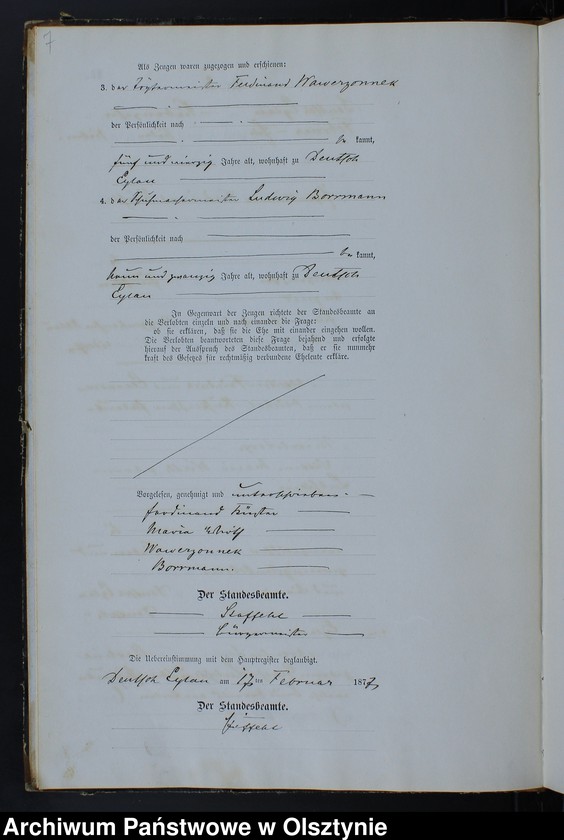 7
Als Zeugen waren zugezogen und erschienen:
3. der Töpfermeister Ferdinand Wawerzonnek
der Persönlichkeit nach
be kannt,
fünf und vierzig Jahre alt, wohnhaft zu Deutsch
Eylau
4. der Schuhmachermeister Ludwig Borrmann
der Persönlichkeit nach
be kannt,
neun und zwanzig Jahre alt, wohnhaft zu Deutsch
Eylau
In Gegenwart der Zeugen richtete der Standesbeamte an
die Verlobten einzeln und nach einander die Frage:
ob sie erklären, daß sie die Ehe mit einander eingehen wollen.
Die Verlobten beantworteten diese Frage bejahend und erfolgte
hierauf der Ausspruch des Standesbeamten, daß er sie nunmehr
kraft des Gesetzes für rechtmäßig verbundene Eheleute erkläre.
Vorgelesen, genehmigt und unterschrieben.
Ferdinand
Maria
Wawerzonnek
Borrmann.
Der Standesbeamte.
Staffehl
Bürgermeister
Die Uebereinstimmung mit dem Hauptregister beglaubigt.
Deutsch Eylau am 17ten Februar 1877
Der Standesbeamte.
Staffehl
Archiwum Państwowe w Olsztynie